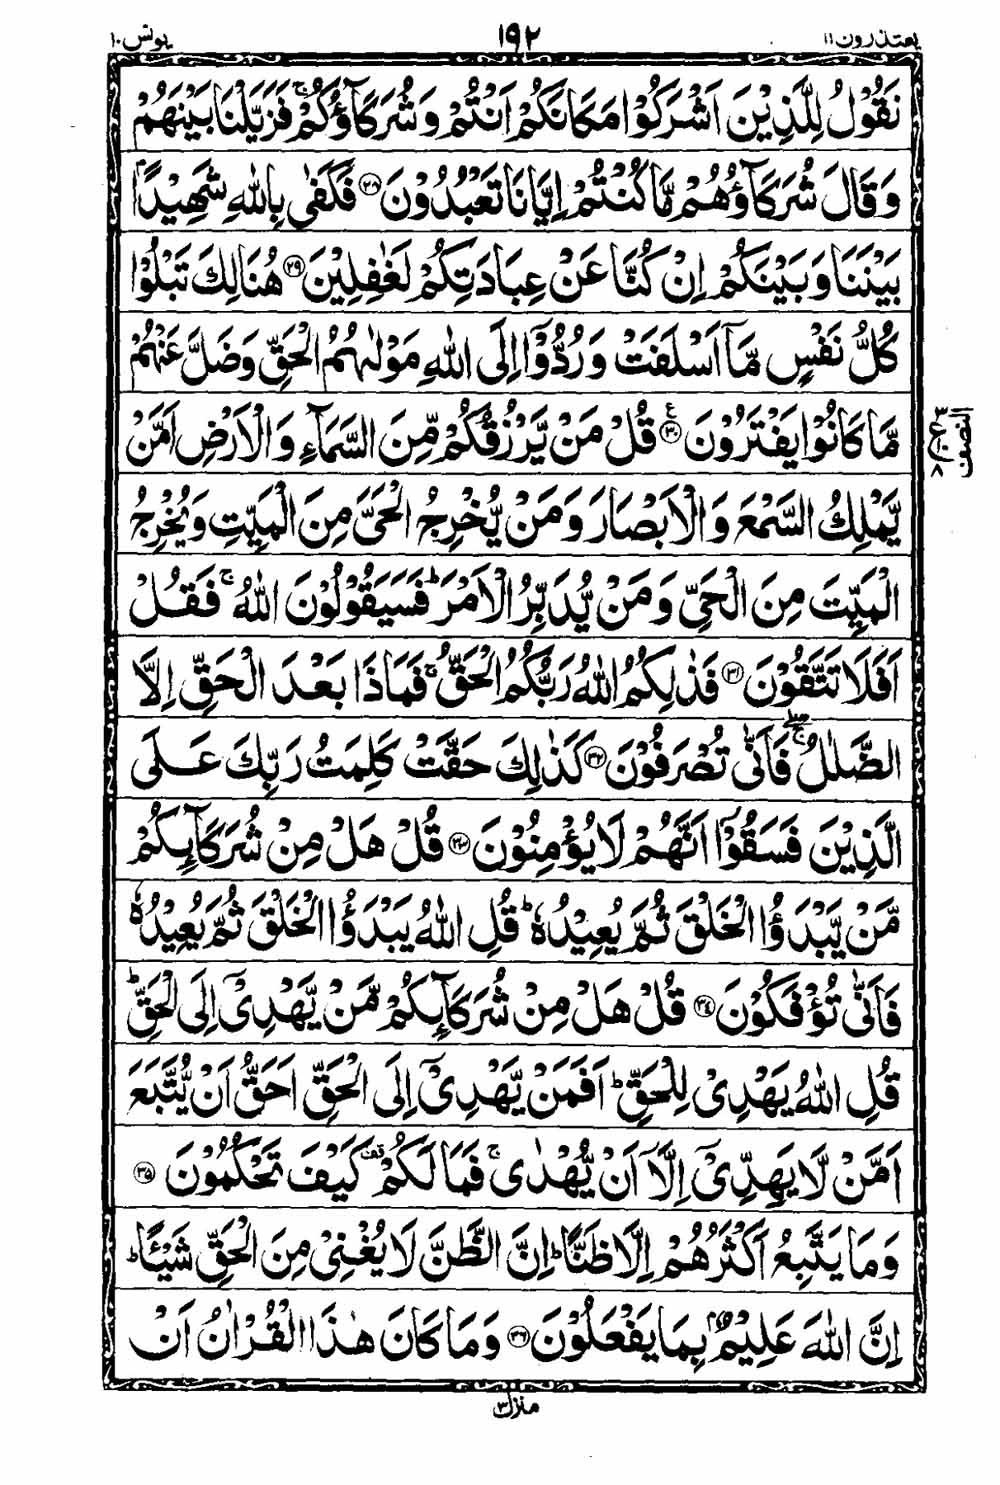 یعتذرون ۱۱ ۱۹۲ یونس ۱۰
نَقُوْلُ لِلَّذِيْنَ اَشْرَكُوْا مَكَانَكُمْ اَنْتُمْ وَشُرَكَآؤُكُمْ ۚ فَزَيَّلْنَا بَيْنَهُمْ
وَقَالَ شُرَكَآؤُهُمْ مَّا كُنْتُمْ اِيَّانَا تَعْبُدُوْنَ ۝۲۸ فَكَفٰى بِاللّٰهِ شَهِيْدًۢا
بَيْنَنَا وَبَيْنَكُمْ اِنْ كُنَّا عَنْ عِبَادَتِكُمْ لَغٰفِلِيْنَ ۝۲۹ هُنَالِكَ تَبْلُوْا
كُلُّ نَفْسٍ مَّآ اَسْلَفَتْ وَرُدُّوْٓا اِلَى اللّٰهِ مَوْلٰىهُمُ الْحَقِّ وَضَلَّ عَنْهُمْ
مَّا كَانُوْا يَفْتَرُوْنَ ۝۳۰ ع قُلْ مَنْ يَّرْزُقُكُمْ مِّنَ السَّمَآءِ وَالْاَرْضِ اَمَّنْ
يَّمْلِكُ السَّمْعَ وَالْاَبْصَارَ وَمَنْ يُّخْرِجُ الْحَيَّ مِنَ الْمَيِّتِ وَيُخْرِجُ
الْمَيِّتَ مِنَ الْحَيِّ وَمَنْ يُّدَبِّرُ الْاَمْرَ ؕ فَسَيَقُوْلُوْنَ اللّٰهُ ۚ فَقُلْ
اَفَلَا تَتَّقُوْنَ ۝۳۱ فَذٰلِكُمُ اللّٰهُ رَبُّكُمُ الْحَقُّ ۚ فَمَاذَا بَعْدَ الْحَقِّ اِلَّا
الضَّلٰلُ ۖۚ فَاَنّٰى تُصْرَفُوْنَ ۝۳۲ كَذٰلِكَ حَقَّتْ كَلِمَتُ رَبِّكَ عَلَى
الَّذِيْنَ فَسَقُوْٓا اَنَّهُمْ لَا يُؤْمِنُوْنَ ۝۳۳ قُلْ هَلْ مِنْ شُرَكَآئِكُمْ
مَّنْ يَّبْدَؤُا الْخَلْقَ ثُمَّ يُعِيْدُهٗ ؕ قُلِ اللّٰهُ يَبْدَؤُا الْخَلْقَ ثُمَّ يُعِيْدُهٗ
فَاَنّٰى تُؤْفَكُوْنَ ۝۳۴ قُلْ هَلْ مِنْ شُرَكَآئِكُمْ مَّنْ يَّهْدِيْٓ اِلَى الْحَقِّ ؕ
قُلِ اللّٰهُ يَهْدِيْ لِلْحَقِّ ؕ اَفَمَنْ يَّهْدِيْٓ اِلَى الْحَقِّ اَحَقُّ اَنْ يُّتَّبَعَ
اَمَّنْ لَّا يَهِدِّيْٓ اِلَّآ اَنْ يُّهْدٰى ۚ فَمَا لَكُمْ قف كَيْفَ تَحْكُمُوْنَ ۝۳۵
وَمَا يَتَّبِعُ اَكْثَرُهُمْ اِلَّا ظَنًّا ؕ اِنَّ الظَّنَّ لَا يُغْنِيْ مِنَ الْحَقِّ شَيْـًٔا ؕ
اِنَّ اللّٰهَ عَلِيْمٌۢ بِمَا يَفْعَلُوْنَ ۝۳۶ وَمَا كَانَ هٰذَا الْقُرْاٰنُ اَنْ
النصف
۳ ع ۱۰ ۸
منزل ۳